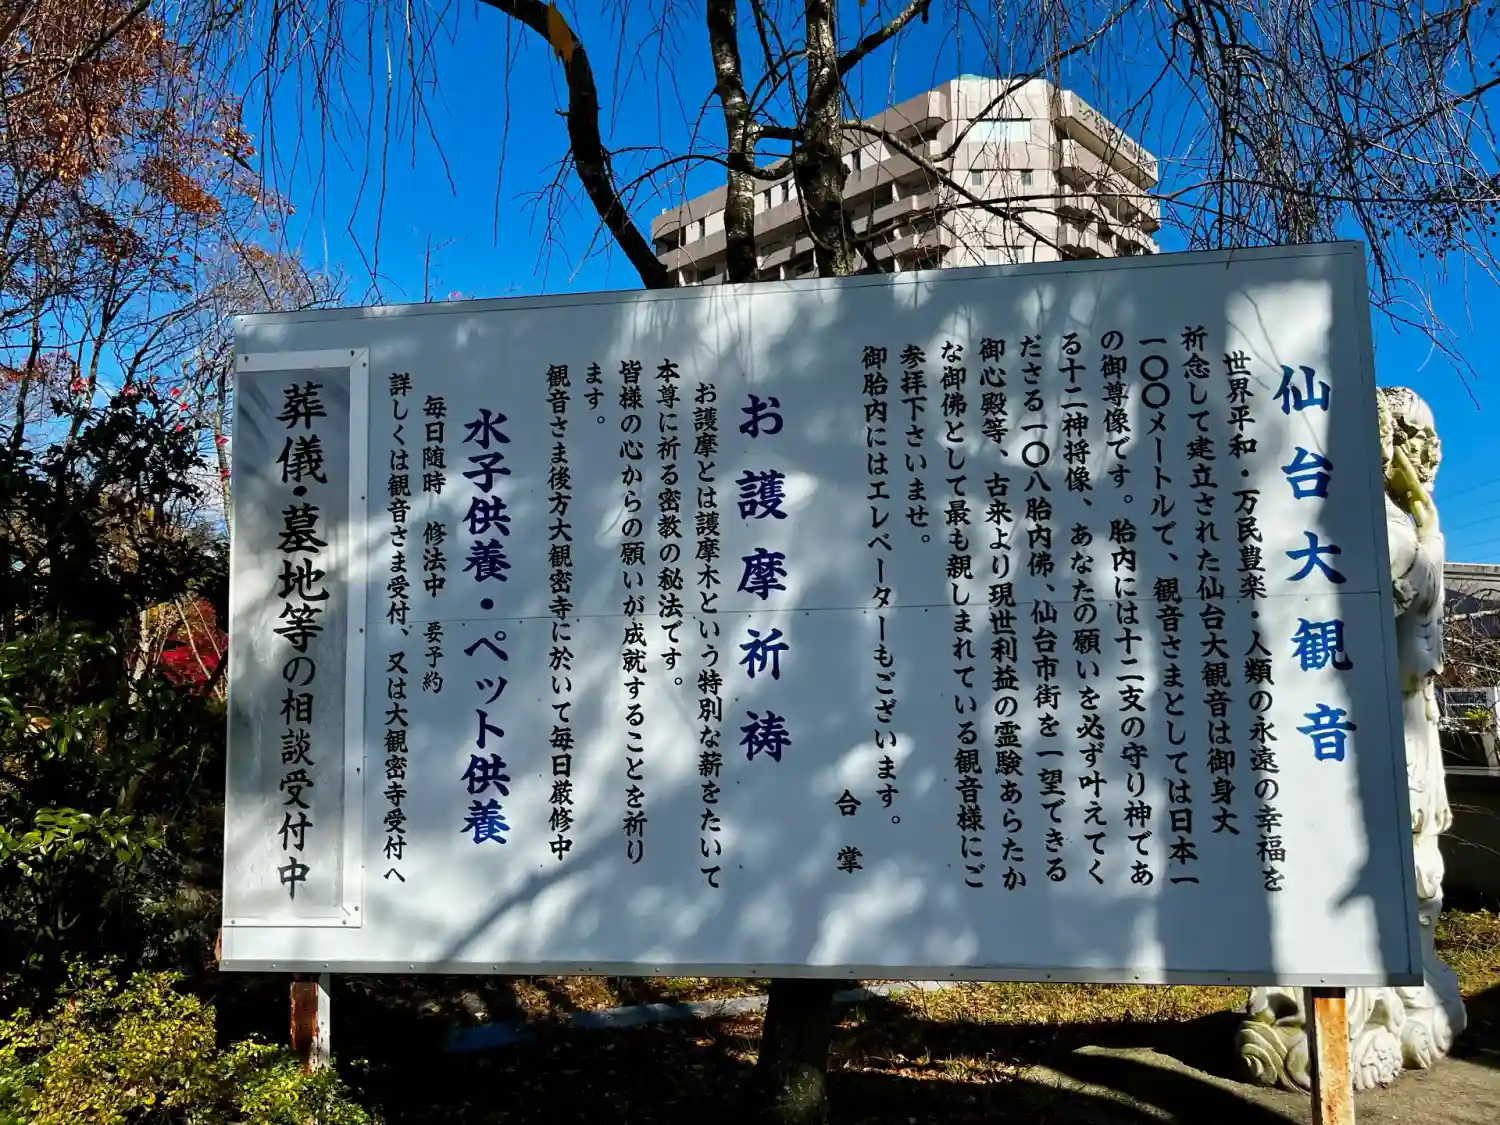 仙台大観音
世界平和・万民豊楽・人類の永遠の幸福を
祈念して建立された仙台大観音は御身大
一〇〇メートルで、観音さまとしては日本一
の御尊像です。胎内には十二支の守り神であ
る十二神将像、あなたの願いを必ず叶えてく
ださる一〇八胎内佛、仙台市街を一望できる
御心殿等、古来より現世利益の霊験あらたか
な御佛として最も親しまれている観音様にご
参拝下さいませ。
御胎内にはエレベーターもございます。
合堂
お護摩祈祷
お護摩とは護摩木という特別な薪をたいて
本尊に祈る密教の秘法です。
皆様の心からの願いが成就することを祈り
ます。
観音さま後方大観密寺に於いて毎日厳修中
水子供養・ペット供養
毎日随時 修法中 要予約
詳しくは観音さま受付、又は大観密寺受付へ
葬儀・墓地等の相談受付中